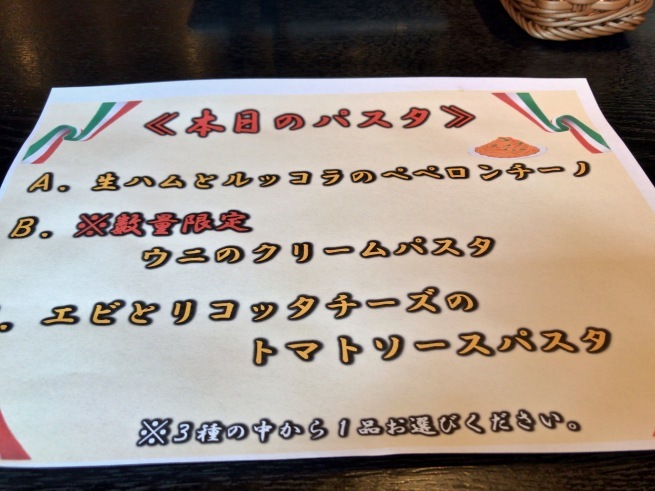 ≪本日のパスタ≫
A. 生ハムとルッコラのペペロンチーノ
B. ※数量限定
ウニのクリームパスタ
. エビとリコッタチーズの
トマトソースパスタ
※3種の中から1品お選びください。